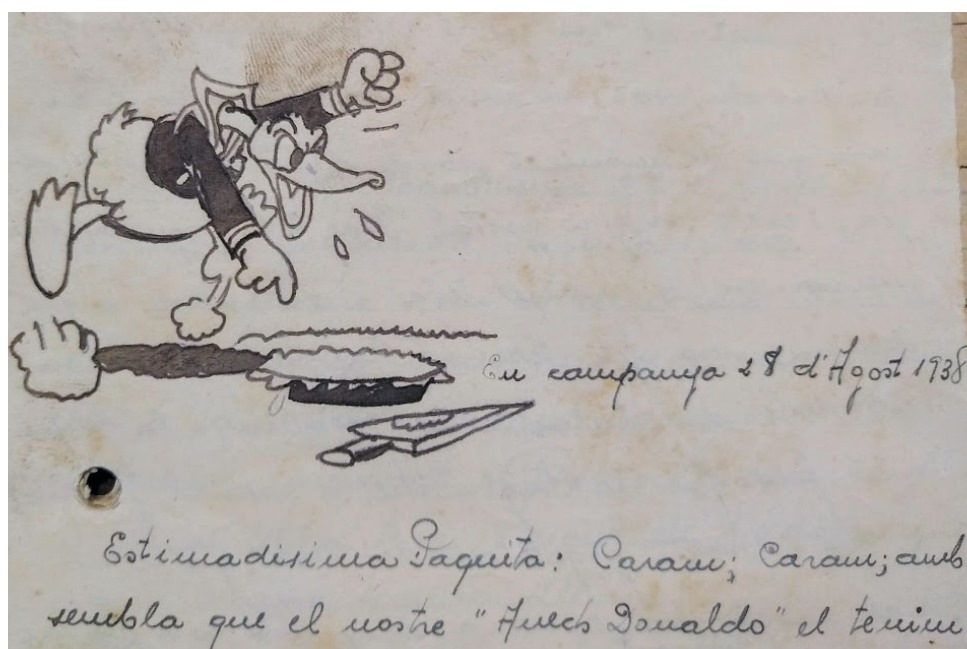 En campanya 28 d'Agost 1938
Estimadisima Paquita: Caram; Caram; amb
sembla que el nostre "Anech Donaldo" el tenim